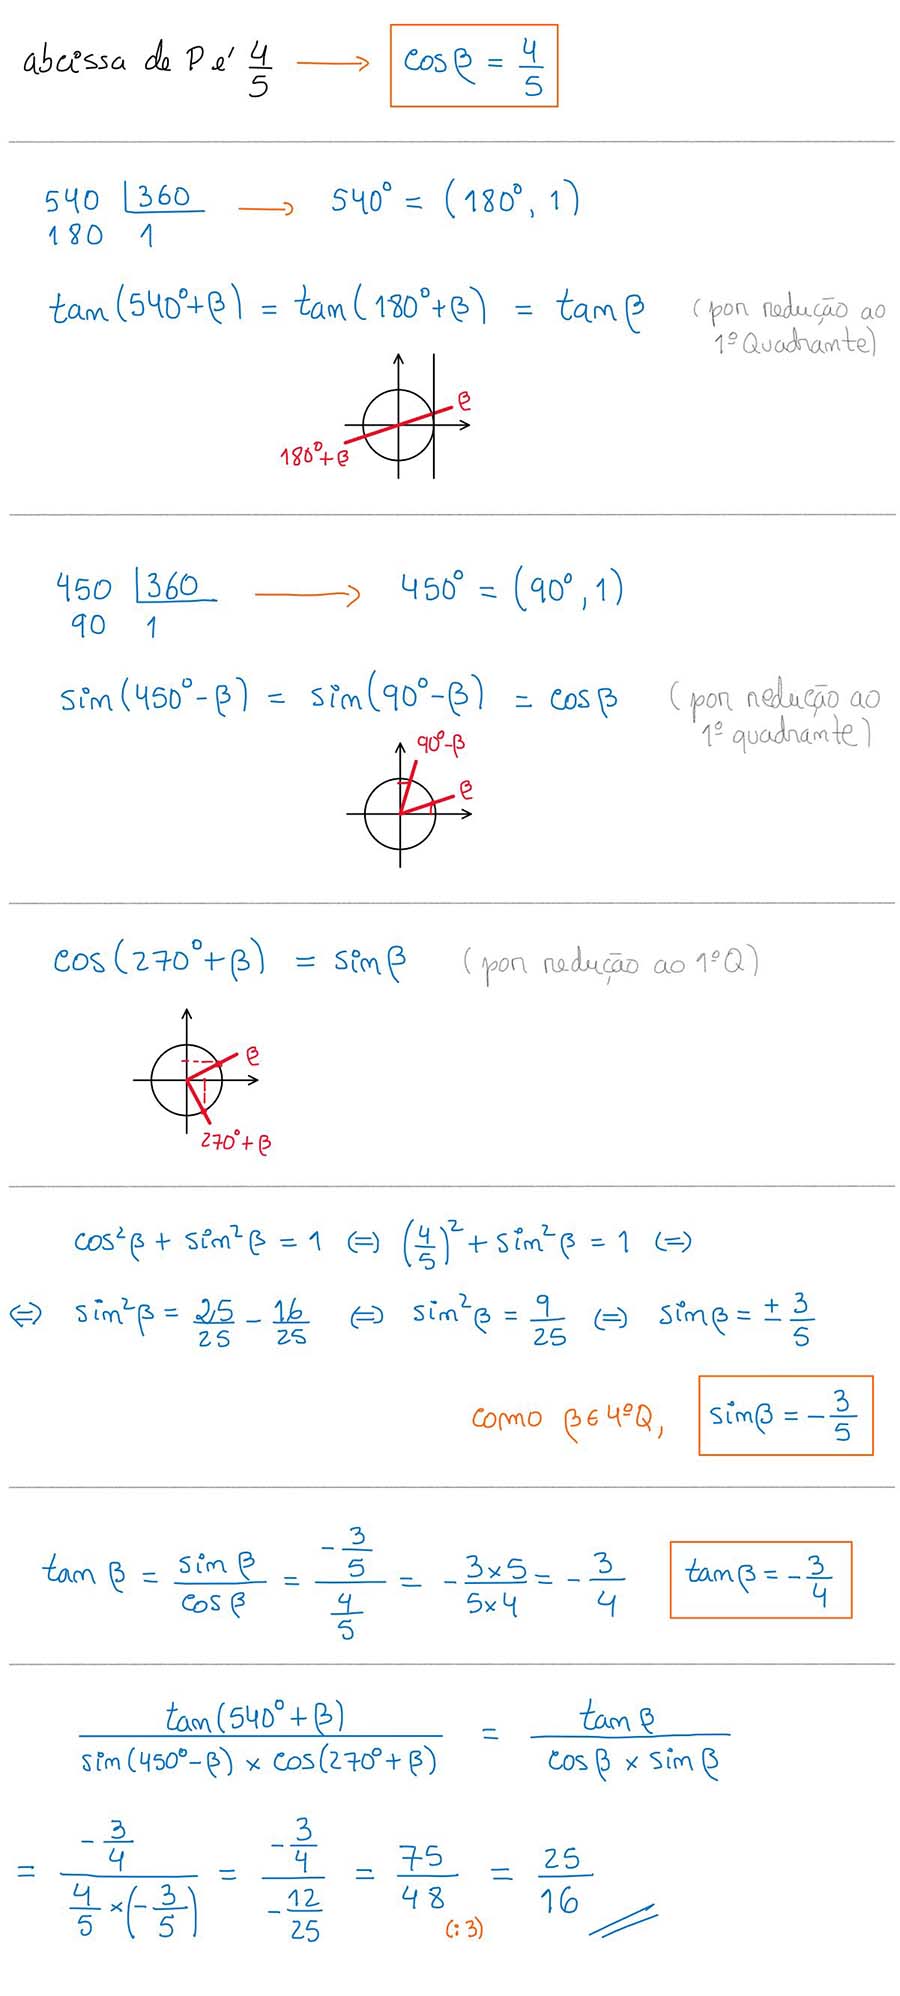 abcissa de P é 4/5 → cos β = 4/5
540 |360 → 540° = (180°, 1)
180 1
tan(540°+β) = tan(180°+β) = tan β (por redução ao
1º Quadrante)
β
180°+β
450 |360 → 450° = (90°, 1)
90 1
sin(450°-β) = sin(90°-β) = cos β (por redução ao
1º quadrante)
90°-β
β
cos(270°+β) = sin β (por redução ao 1ºQ)
β
270°+β
cos²β + sin²β = 1 (=) (4/5)² + sin²β = 1 (=)
(=) sin²β = 25/25 - 16/25 (=) sin²β = 9/25 (=) sin β = ± 3/5
como β ∈ 4ºQ, sin β = - 3/5
tan β = sin β / cos β = (- 3/5) / (4/5) = - 3×5 / 5×4 = - 3/4 tan β = - 3/4
tan(540°+β) / sin(450°-β) × cos(270°+β) = tan β / cos β × sin β
= (- 3/4) / (4/5 × (- 3/5)) = (- 3/4) / (- 12/25) = 75/48 = 25/16
(:3)